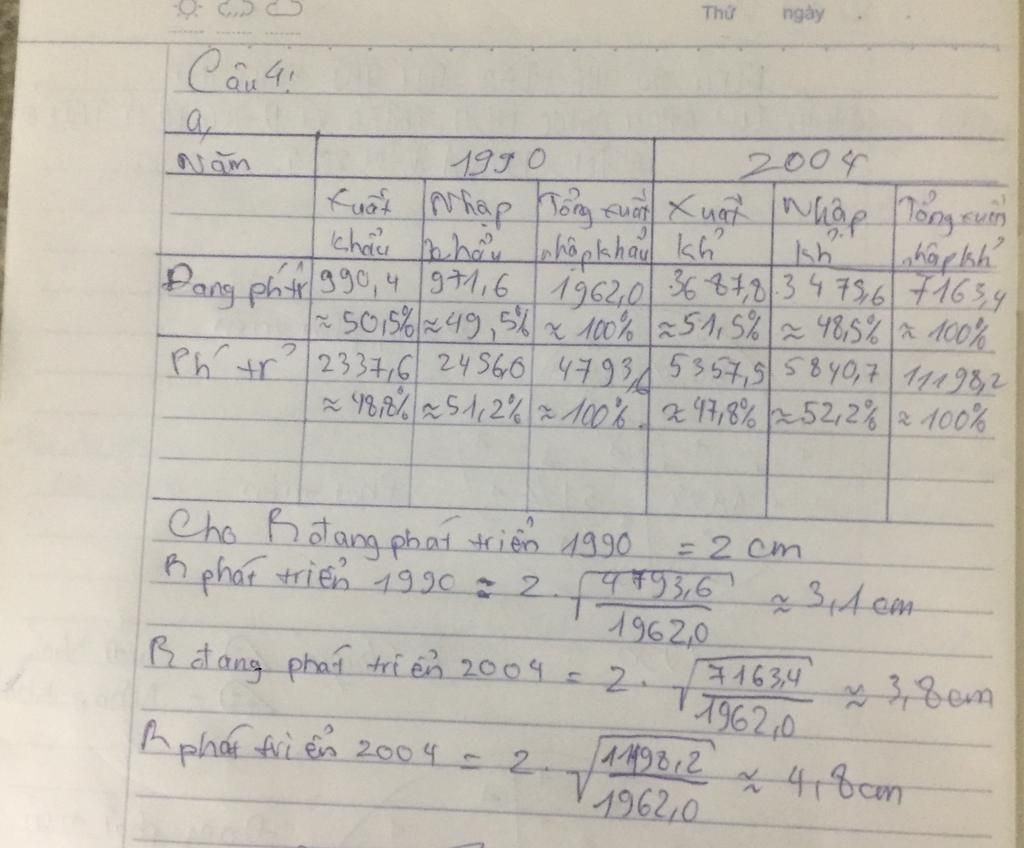 Thứ ngày
Câu 4:
a,
Năm 1990 2004
Xuất khẩu Nhập khẩu Tổng xuất nhập khẩu Xuất kh̉ Nhập kh̉ Tổng xuất nhập kh̉
Đang ph tr 990,4 971,6 1962,0 3687,8 3475,6 7163,4
≈50,5% ≈49,5% ≈100% ≈51,5% ≈48,5% ≈100%
Ph tr 2337,6 2456,0 4793,6 5357,5 5840,7 11198,2
≈48,8% ≈51,2% ≈100% ≈47,8% ≈52,2% ≈100%
Cho R đang phát triển 1990 = 2 cm
R phát triển 1990 ≈ 2.√(4793,6/1962,0) ≈ 3,1 cm
R đang phát triển 2004 = 2.√(7163,4/1962,0) ≈ 3,8 cm
R phát triển 2004 = 2.√(11198,2/1962,0) ≈ 4,8 cm